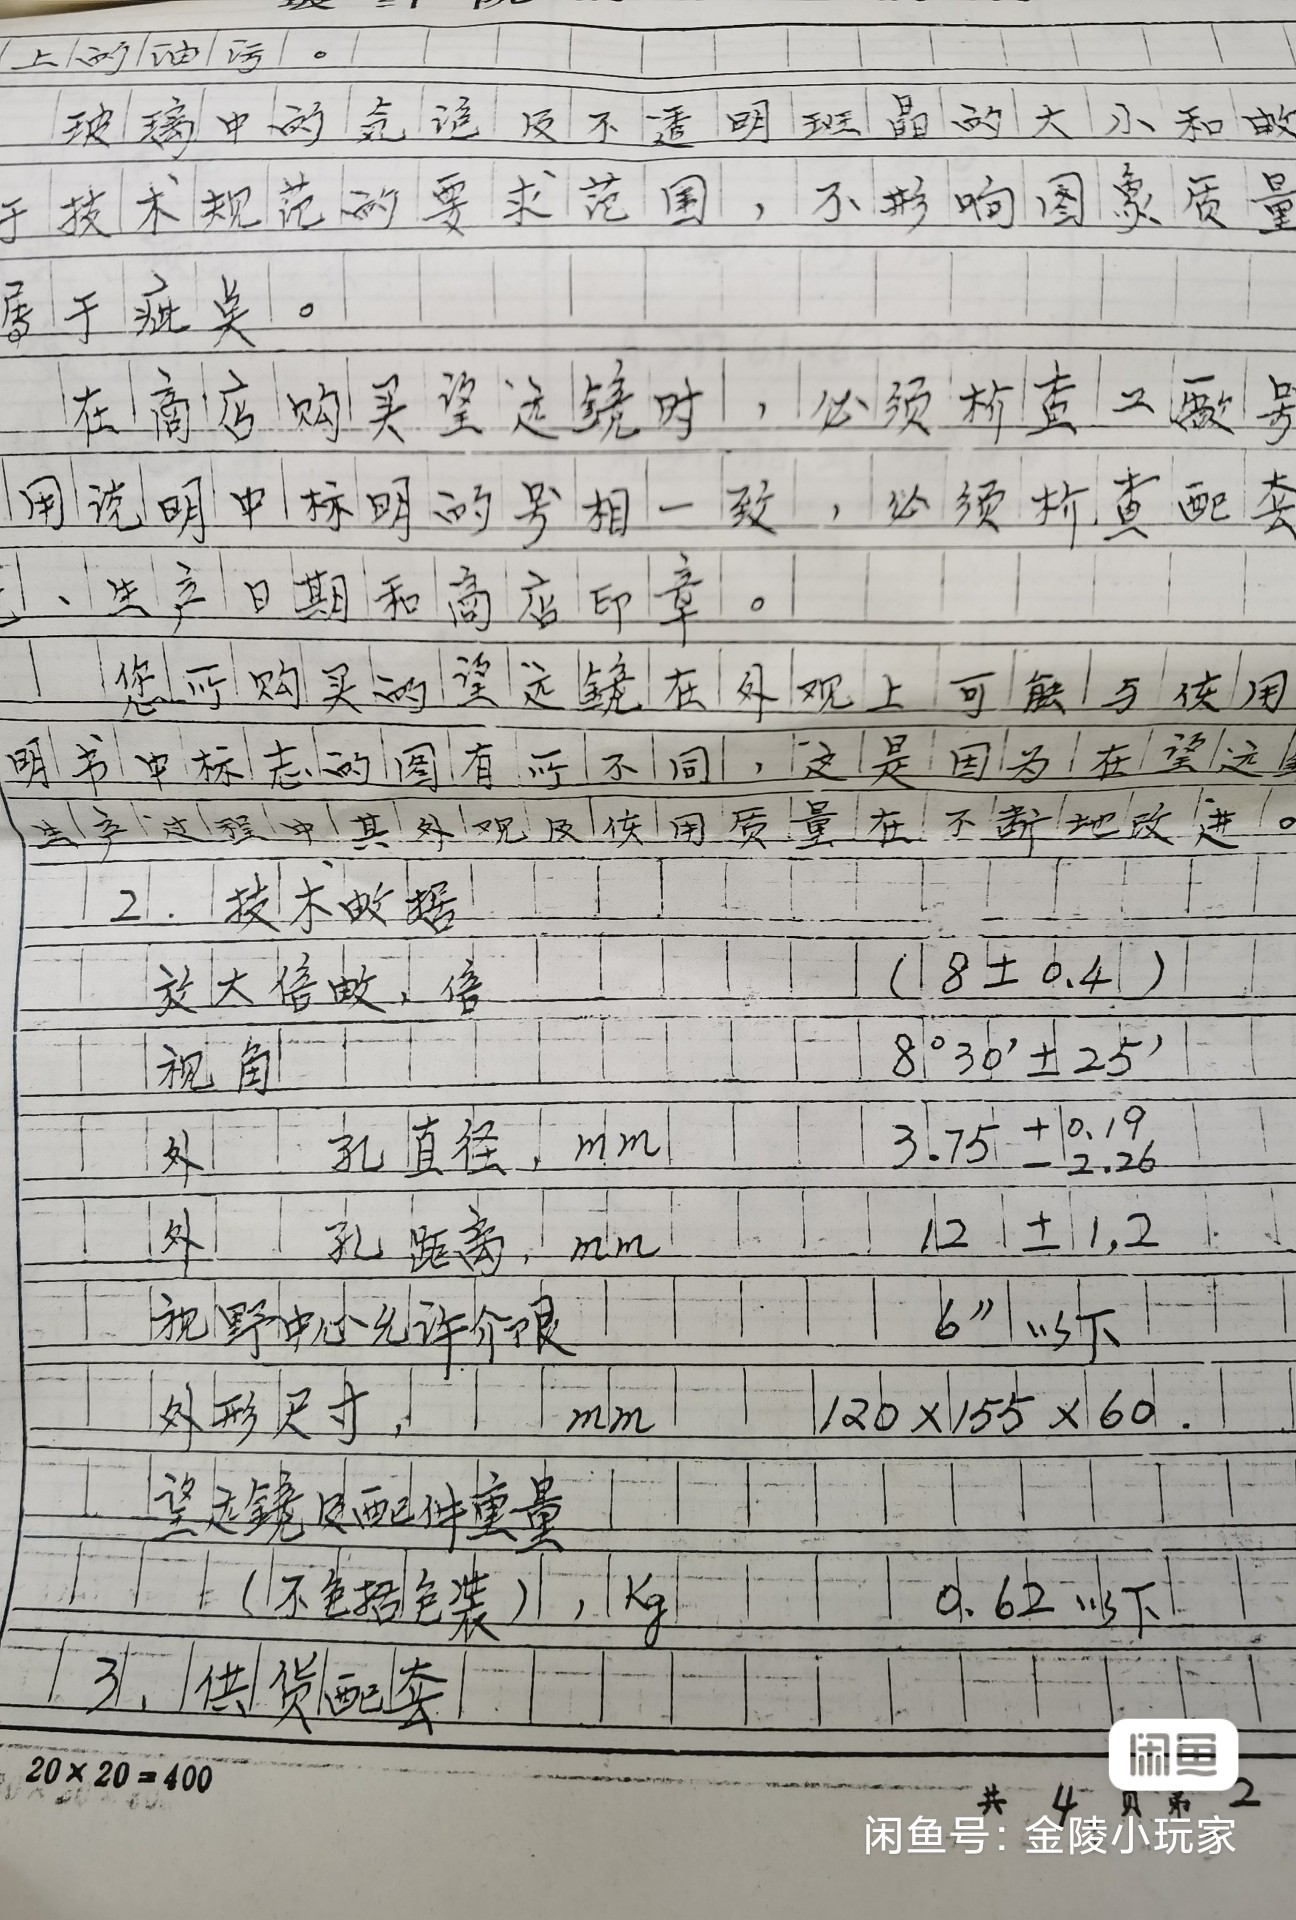 上的油污。
玻璃中的气泡及不透明斑晶的大小和数
于技术规范的要求范围，不形响图象质量
属于疵
在商店购买望远镜时，必须检查工厰号
用说明中标明的号相一致，必须检查配套
、生产日期和商店印章。
您所购买的望远镜在外观上可能与使用
明书中标志的图有所不同，这是因为在望远
生产过程中其外观及使用质量在不断地改进。
2. 技术数据
放大倍数，倍 (8±0.4)
视角 8°30′±25′
外 孔直径，mm 3.75 +0.19 −2.26
外 孔距离，mm 12 ±1,2
视野中心允许介限 6″以下
外形尺寸， mm 120×155×60.
望远镜及配件重量
(不包括包装)，Kg 0.62以下
3、供货配套
20×20=400
共 4 页 第 2
闲鱼
闲鱼号：金陵小玩家